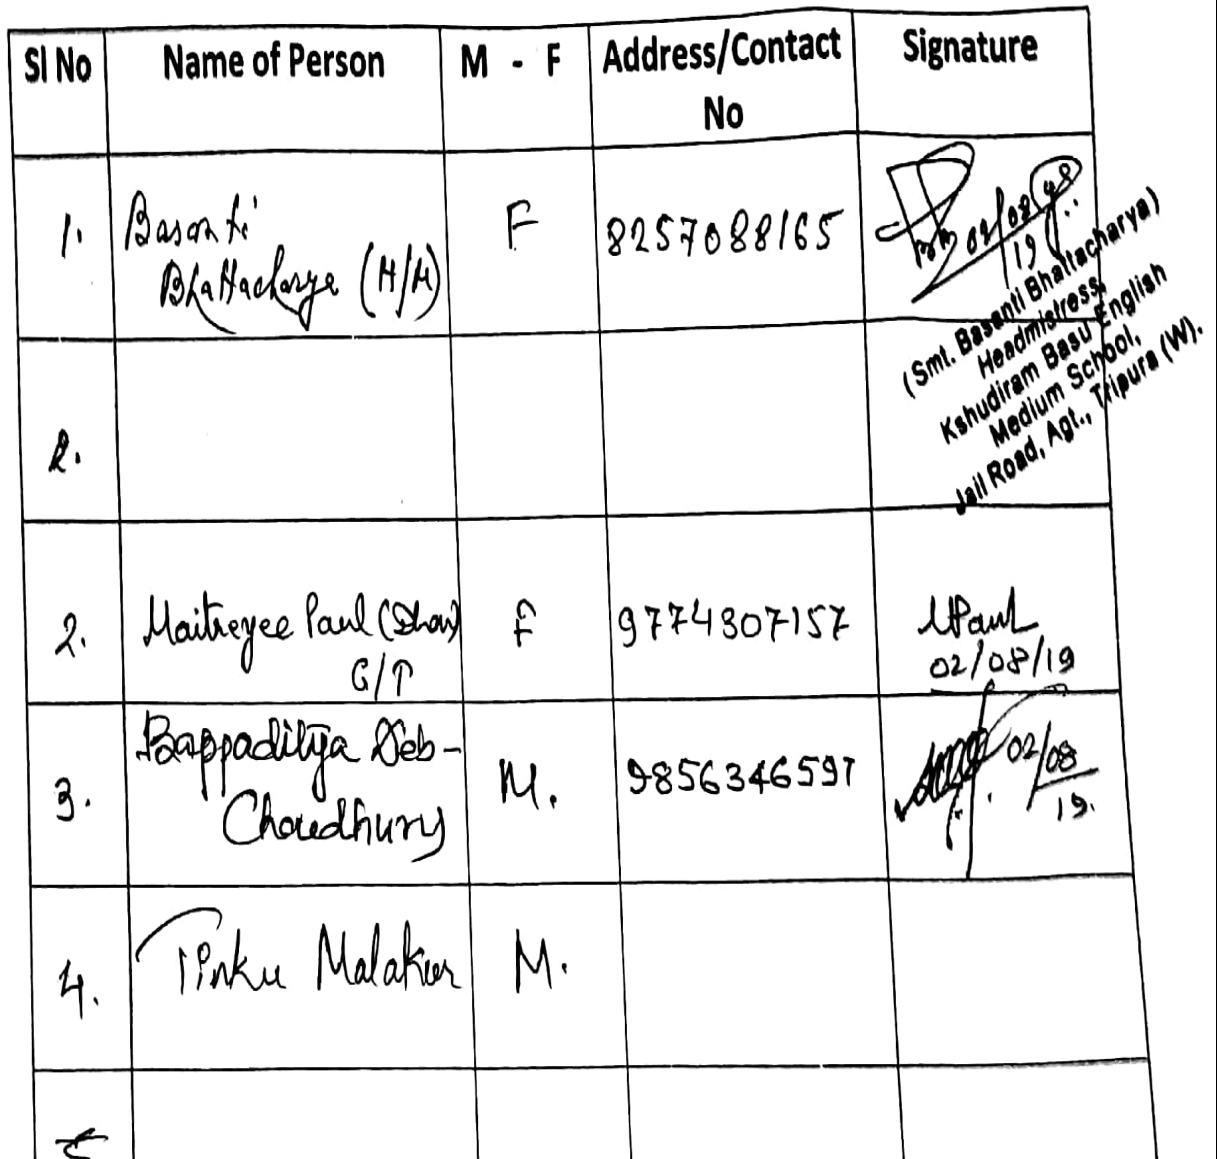 Sl No Name of Person M - F Address/Contact No Signature
1. Basanti Bhattacharya (H/M) F 8257088165 02/08/19
(Smt. Basanti Bhattacharya)
Headmistress,
Kshudiram Basu English
Medium School,
Jail Road, Agt., Tripura (W).
2.
2. Maitreyee Paul (Dhar) G/T F 9774307157 MPaul 02/08/19
3. Bappaditya Deb- Choudhury M. 9856346597 02/08/19.
4. Tinku Malakar M.